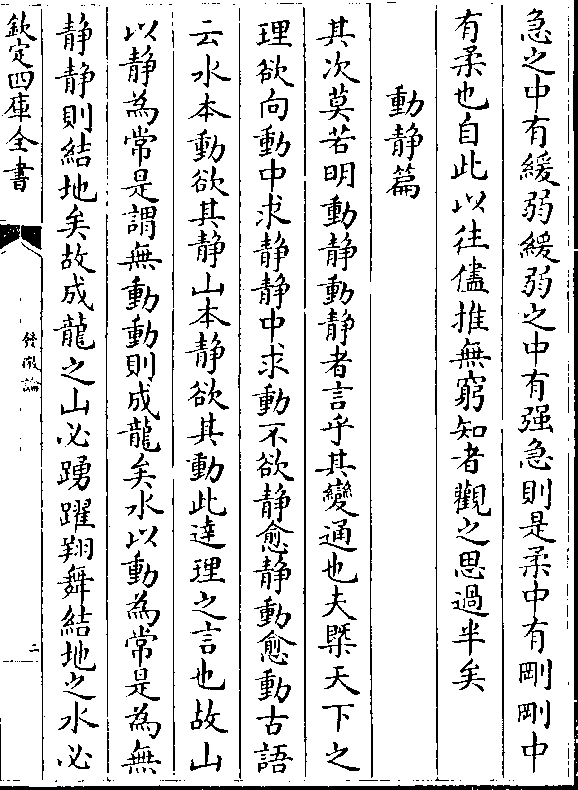 急之中有緩弱緩弱之中有强急則是柔中有剛剛中
有柔也自此以往儘推無窮知者觀之思過半矣
動静篇
其次莫若明動静動静者言乎其變通也夫槩天下之
理欲向動中求静静中求動不欲静愈静動愈動古語
云水本動欲其静山本静欲其動此達理之言也故山
以静為常是謂無動動則成龍矣水以動為常是為無
静静則結地矣故成龍之山必踴躍翔舞結地之水必
欽定四庫全書
發微論
二